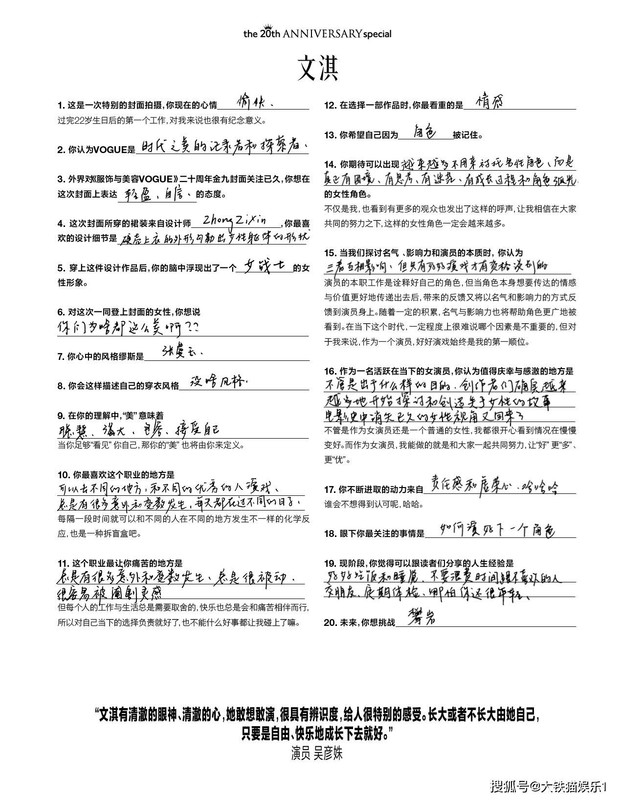 the 20th ANNIVERSARY special
文淇
1. 这是一次特别的封面拍摄,你现在的心情 愉快.
过完22岁生日后的第一个工作,对我来说也很有纪念意义。
2. 你认为VOGUE是 时代之美的记录者和探索者.
3. 外界对《服饰与美容VOGUE》二十周年金九封面关注已久,你想在
这次封面上表达 轻盈、自信、 的态度。
4. 这次封面所穿的裙装来自设计师 Zhong Zixin ,你最喜
欢的设计细节是 硬店上衣的外形勾勒出女性躯体的形状
5. 穿上这件设计作品后,你的脑中浮现出了一个 女战士 的女
性形象。
6. 对这次一同登上封面的女性,你想说
你们为啥都这么美啊??
7. 你心中的风格缪斯是 张曼玉.
8. 你会这样描述自己的穿衣风格 没啥风格.
9. 在你的理解中,“美”意味着
智慧、强大、 接受自己
当你足够“看见”你自己,那你的“美”也将由你来定义。
10. 你最喜欢这个职业的地方是
可以去不同的地方,和不同的优秀的人演戏、
总是有很多意外和变数发生,每天都在过不同的日子.
每隔一段时间就可以和不同的人在不同的地方发生不一样的化学反
应,也是一种拆盲盒吧。
11. 这个职业最让你痛苦的地方是
总是有很多意外和变数发生、总是很被动、
很容易被 灵感
但每个人的工作与生活总是需要取舍的,快乐也总是会和痛苦相伴而行,
所以对自己当下的选择负责就好了,也不能什么好事都让我碰上了嘛。
12. 在选择一部作品时,你最看重的是 情感
13. 你希望自己因为 角色 被记住。
14. 你期待可以出现 越来越多不同来讨论女性角色、而是
真正有困境、有思考、有迷茫、有成长过程和角色弧光
的女性角色。
不仅是我,也看到有更多的观众也发出了这样的呼声,让我相信在大家
共同的努力之下,这样的女性角色一定会越来越多。
15. 当我们探讨名气、影响力和演员的本质时,你认为
三者互相影响,但只有好好演戏才有资格谈别的
演员的本职工作是诠释好自己的角色,但当角色本身想要传达的情感
与价值更好地传递出去后,带来的反馈又将以名气和影响力的方式反
馈到演员身上。随着一定的积累,名气与影响力也将帮助角色更广地被
看到。在当下这个时代,一定程度上很难说哪个因素是不重要的,但对
于我来说,作为一个演员,好好演戏始终是我的第一顺位。
16. 作为一名活跃在当下的女演员,你认为值得庆幸与感激的地方是
不管是出于什么样的目的,创作者们确实越来
越多地开始探讨和创造关于女性的故事
电影史中消失已久的女性视角又回来了
不管是作为女演员还是一个普通的女性,我都很开心看到情况在慢慢
变好。而作为女演员,我能做的就是和大家一起共同努力,让“好”更“多”、
更“优”。
17. 你不断进取的动力来自 责任感和虚荣心.哈哈哈
谁会不想得到认可呢,哈哈。
18. 眼下你最关注的事情是 如何演好下一个角色
19. 现阶段,你觉得可以跟读者们分享的人生经验是
好好吃饭和睡觉、不要浪费时间跟不喜欢的人
交朋友、定期体检、哪怕你还很年轻.
20. 未来,你想挑战 攀岩
“文淇有清澈的眼神、清澈的心,她敢想敢演,很具有辨识度,给人很特别的感受。长大或者不长大由她自己,
只要是自由、快乐地成长下去就好。”
演员 吴彦姝
搜狐号@大铁猫娱乐1